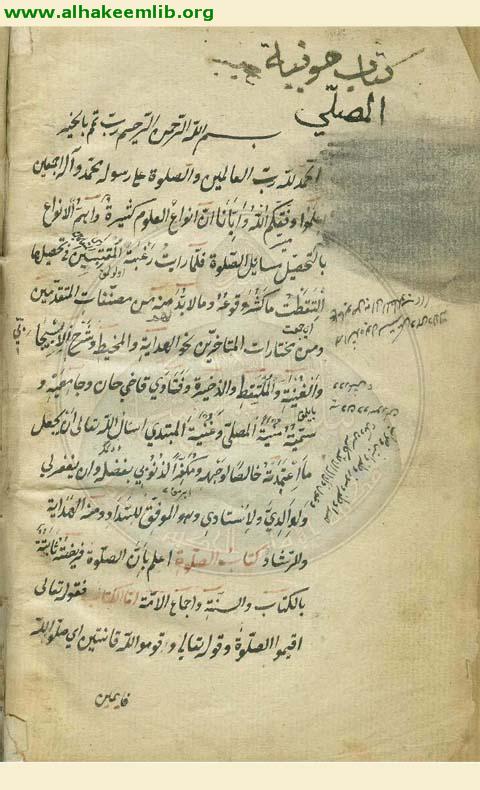 www.alhakeemlib.org
كتاب
المصلّي
بسم الله الرحمن الرحيم رب تمم بالخير
الحمد لله رب العالمين والصلوة على رسوله محمد وآله اجمعين
اعلموا وفقكم الله وايانا ان انواع العلوم كثيرة واهم الانواع
بالتحصيل مسايل الصلوة فلما رايت رغبة المقتبسين في تحصيلها
التقطت ما كثر وقوعه وما لابد منه من مصنفات المتقدمين
ومن مختارات المتاخرين نحو الهداية والمحيط وشرح الاسبيجابي
والغنية والملتقط والذخيرة وفتاوي قاضي خان وجامعيه و
سميته منية المصلي وغنية المبتدي اسأل الله تعالى ان يجعل
ما اعتمدته خالصا لوجهه ومكفرا لذنوبي بفضله وان يغفر لي
ولوالدي ولاستادي وهو الموفق للسداد ومنه الهداية
والرشاد كتاب الصلوة اعلم بان الصلوة فريضة ثابتة
بالكتاب والسنة واجماع الامة اما الكتاب فقوله تعالى
اقيموا الصلوة وقوله تعالى وقوموا لله قانتين اي صلوا لله
قايمين